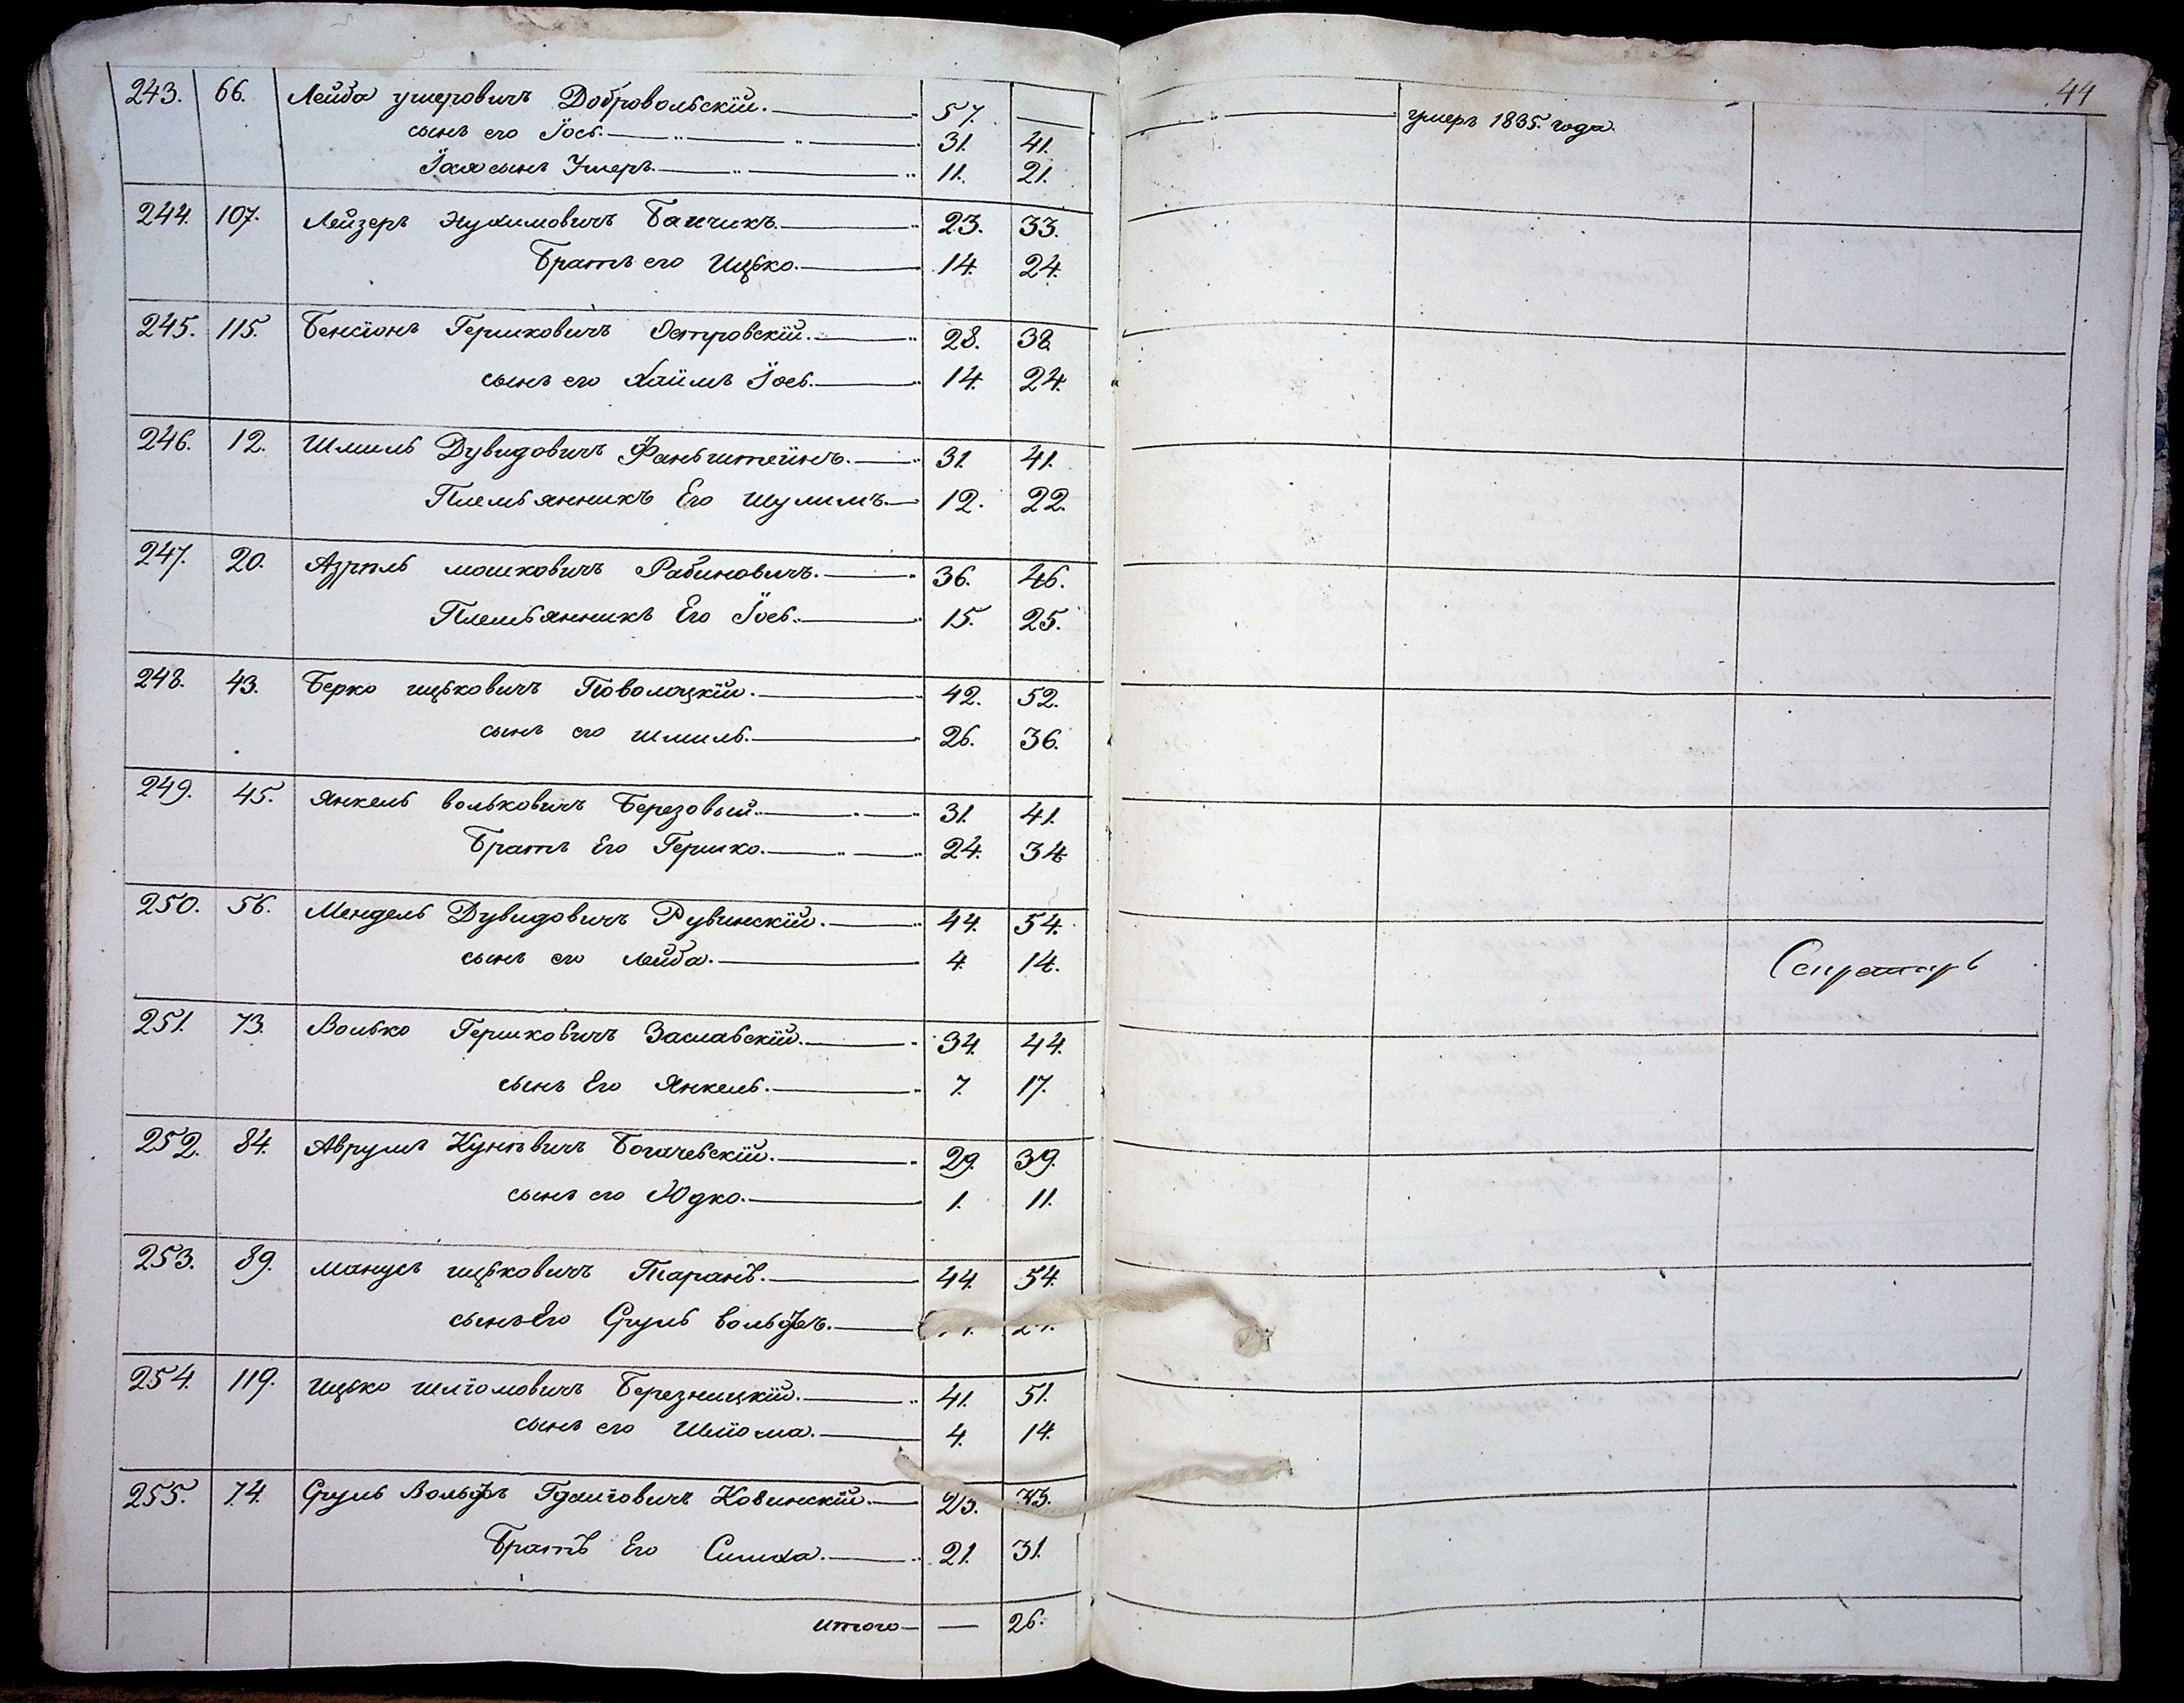 44
243. 66. Лейба умеровичъ Добровольскій. 57. — умеръ 1835. года.
сынъ его Іось. 31. 41.
Іося сынъ Умеръ. 11. 21.
244. 107. Лейзеръ Нухимовичъ Банчикъ. 23. 33.
Братъ его Ицько. 14. 24.
245. 115. Бенсіонъ Гершковичъ Островскій. 28. 38.
сынъ его Хаимъ Іось. 14. 24.
246. 12. Шмиль Дувидовичъ Фаньштейнъ. 31. 41.
Племьянникъ Его Шулимъ. 12. 22.
247. 20. Азріиль мошковичъ Рабиновичъ. 36. 46.
Племьянникъ Его Іось. 15. 25.
248. 43. Берко ицьковичъ Поволоцкій. 42. 52.
сынъ его шмиль. 26. 36.
249. 45. Янкель вольковичъ Березовый. 31. 41.
Братъ Его Гершко. 24. 34.
250. 56. Мендель Дувидовичъ Рувинскій. 44. 54.
сынъ его Лейба. 4. 14. Секретарь
251. 73. Волько Гершковичъ Заславскій. 34. 44.
сынъ Его Янкель. 7. 17.
252. 84. Аврумъ Куневичъ Богачевскій. 29. 39.
сынъ его Юдко. 1. 11.
253. 89. Манусъ ицьковичъ Таранъ. 44. 54.
сынъ Его Сруль вольфъ.
254. 119. Ицько шліомовичъ Березницкій. 41. 51.
сынъ его Шліома. 4. 14.
255. 74. Сруль Вольфъ Гдаліовичъ Ковинскій.
Братъ Его Симха. 21. 31.
итого — 26.